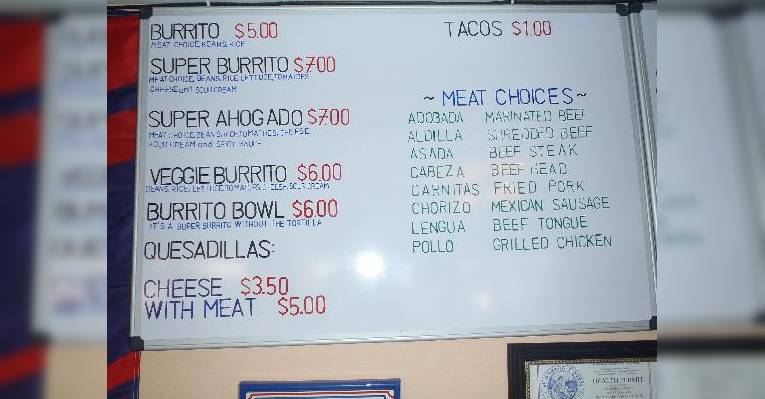 BURRITO $5.00
MEAT CHOICE, BEANS, RICE
SUPER BURRITO $7.00
MEAT CHOICE, BEANS, RICE, LETTUCE, TOMATOES
CHEESE and SOUR CREAM
SUPER AHOGADO $7.00
MEAT CHOICE, BEANS, RICE, TOMATOES, CHEESE
SOUR CREAM and SPICY SAUCE
VEGGIE BURRITO $6.00
BEANS, RICE, LETTUCE, TOMATOES, CHEESE, SOUR CREAM
BURRITO BOWL $6.00
IT'S A SUPER BURRITO WITHOUT THE TORTILLA
QUESADILLAS:
CHEESE $3.50
WITH MEAT $5.00
TACOS $1.00
~ MEAT CHOICES ~
ADOBADA MARINATED BEEF
ALDILLA SHREDDED BEEF
ASADA BEEF STEAK
CABEZA BEEF HEAD
CARNITAS FRIED PORK
CHORIZO MEXICAN SAUSAGE
LENGUA BEEF TONGUE
POLLO GRILLED CHICKEN
HEALTH PERMIT